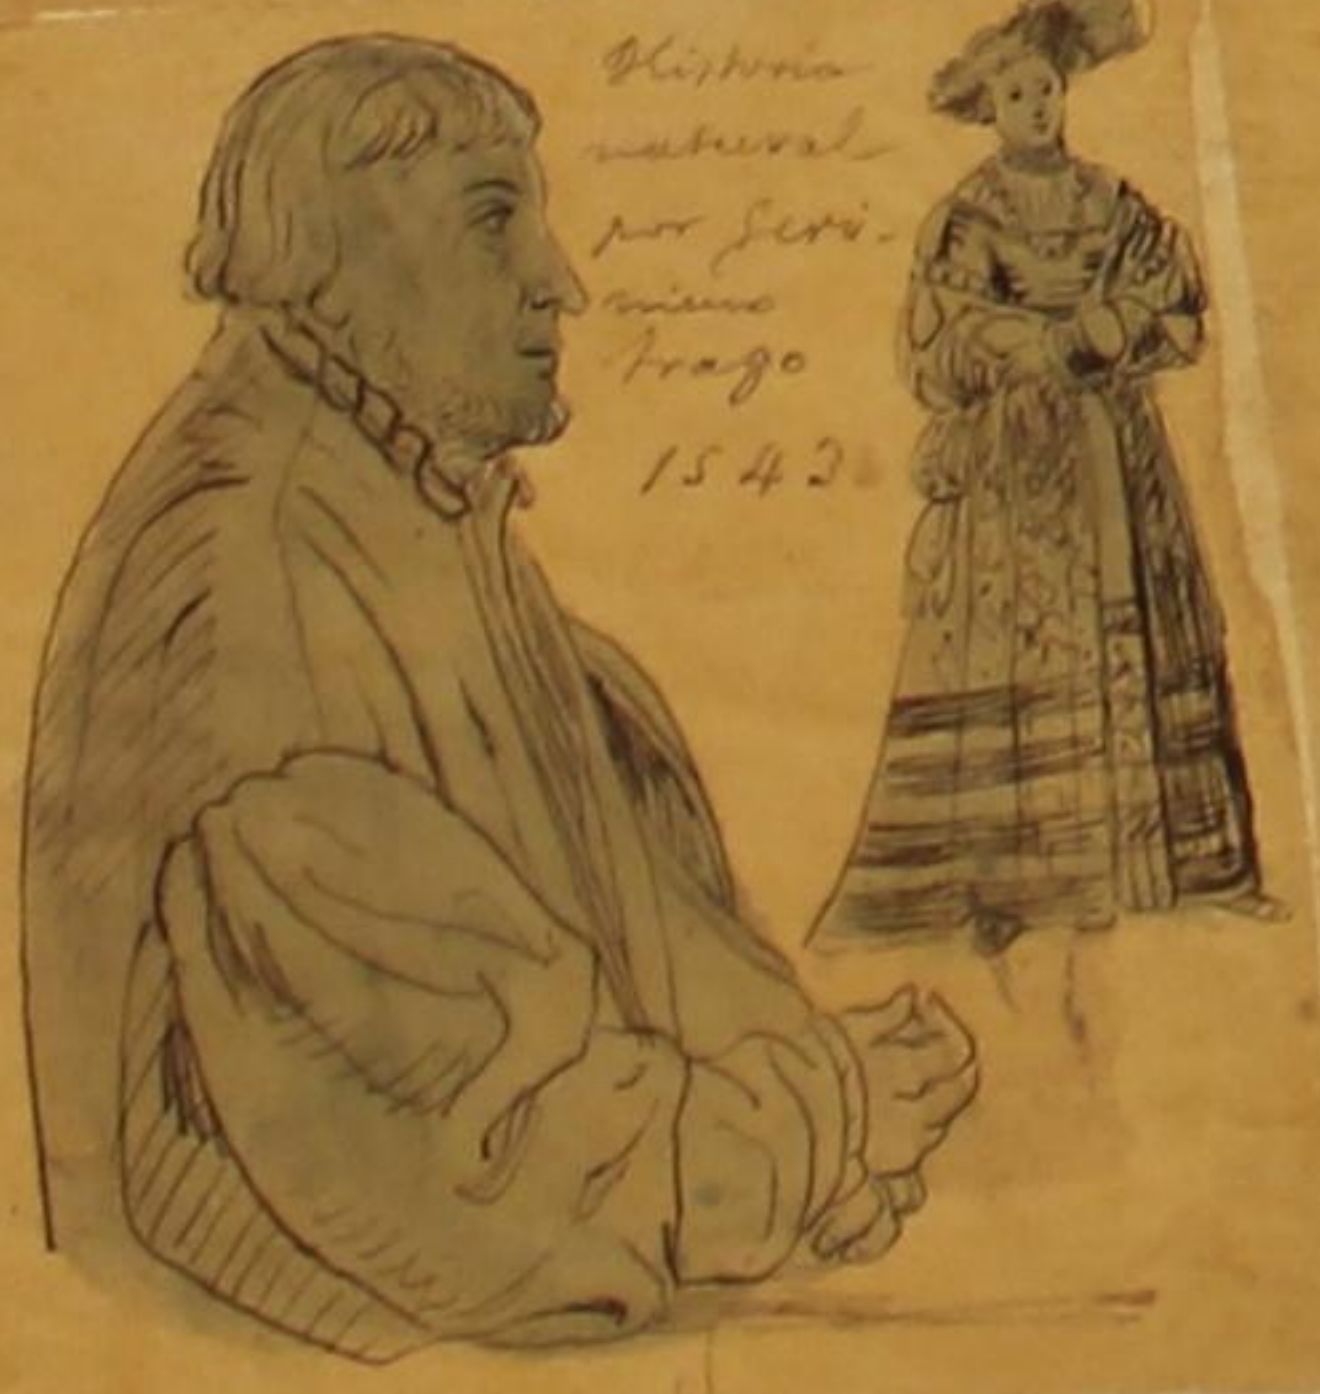 Historia
natural
por Geró-
nimo
trago
1543